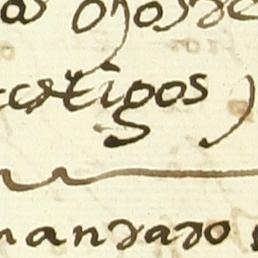 ojos de
testigos
mandado